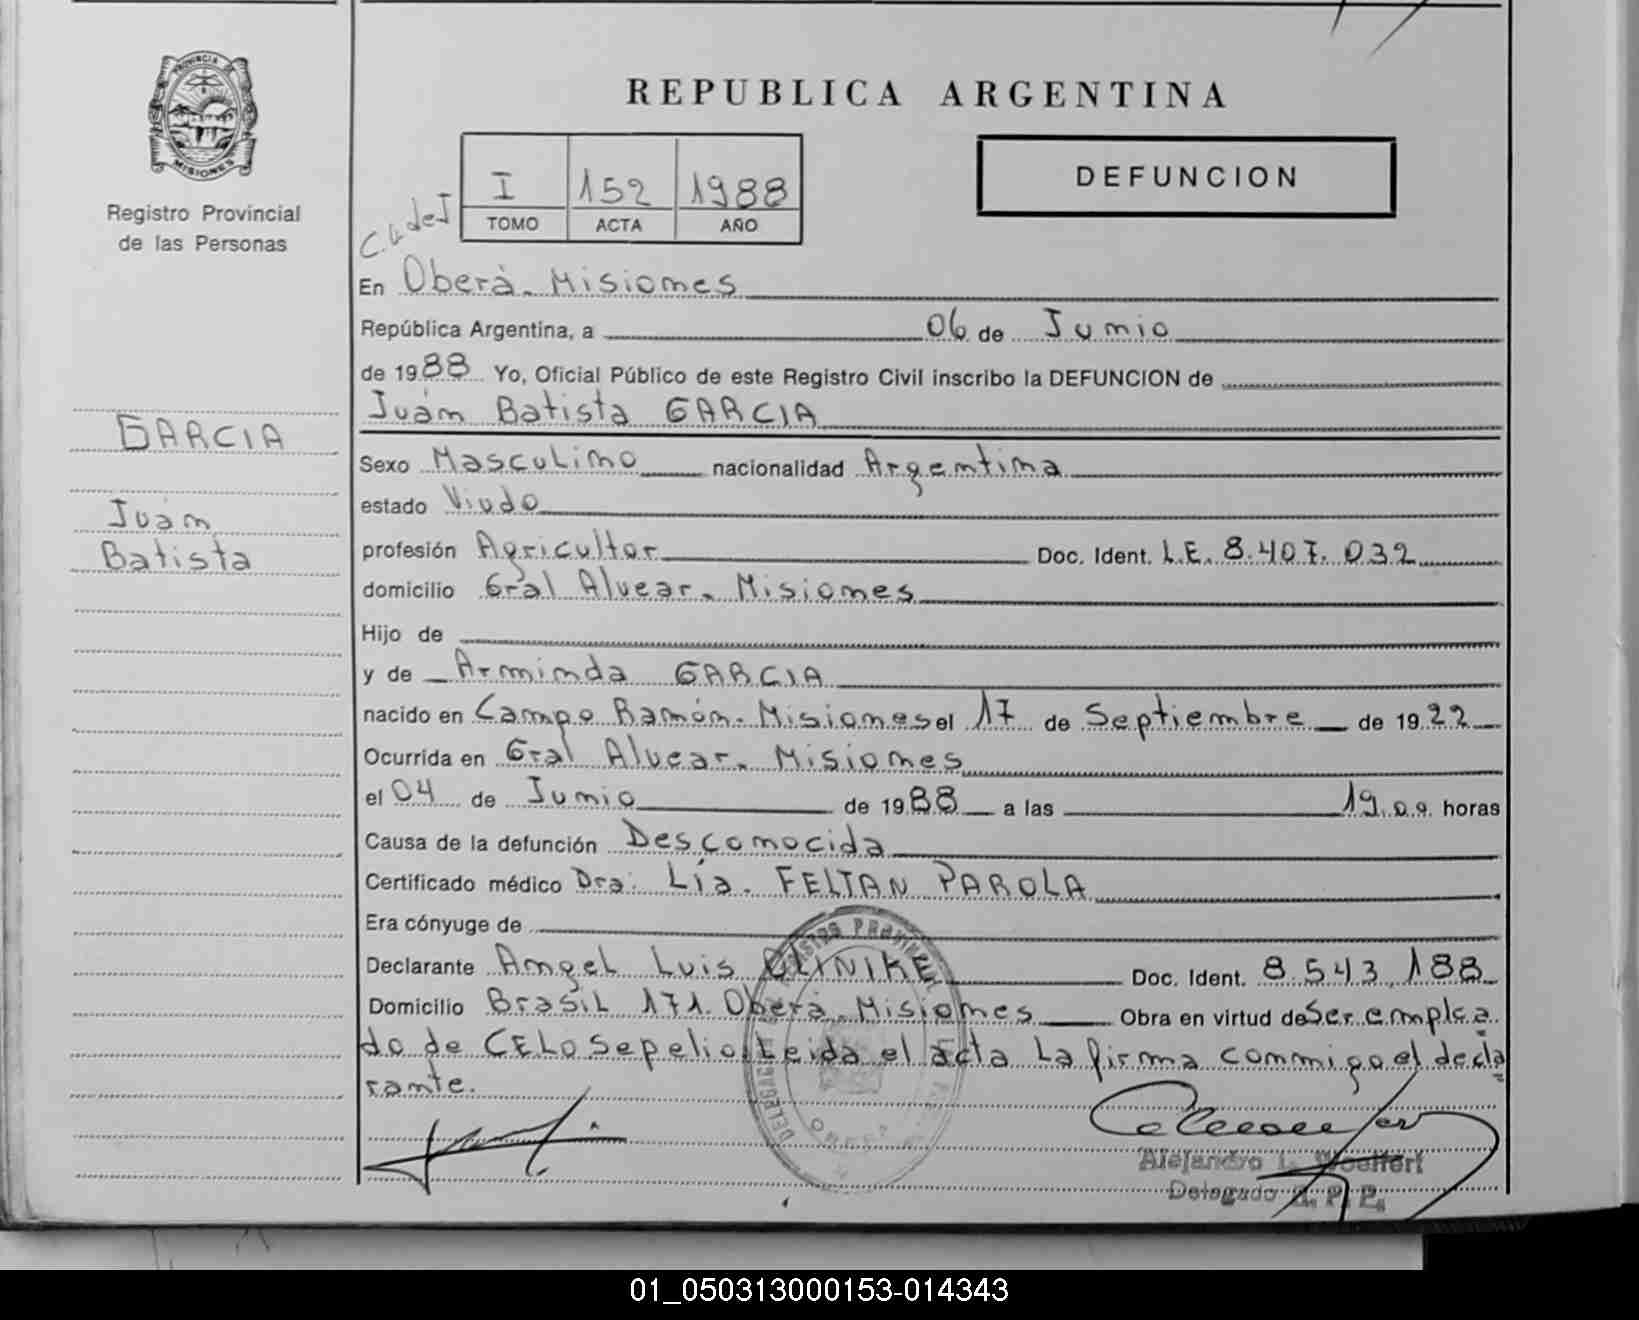 PROVINCIA DE
MISIONES
Registro Provincial
de las Personas
GARCIA
Juan
Batista
REPUBLICA ARGENTINA
DEFUNCION
I 152 1988
TOMO ACTA AÑO
En Oberá. Misiones
República Argentina, a 06 de Junio
de 1988 Yo, Oficial Público de este Registro Civil inscribo la DEFUNCION de
Juan Batista GARCIA
Sexo Masculino nacionalidad Argentina
estado Viudo
profesión Agricultor Doc. Ident. L.E. 8.407.032
domicilio Gral Alvear. Misiones
Hijo de
y de Arminda GARCIA
nacido en Campo Ramón. Misiones el 17 de Septiembre de 1922
Ocurrida en Gral Alvear. Misiones
el 04 de Junio de 1988 a las 19.00 horas
Causa de la defunción Desconocida
Certificado médico Dra. Lia. FELTAN PAROLA
Era cónyuge de
Declarante Angel Luis Doc. Ident. 8.543.188
Domicilio Brasil 171. Oberá. Misiones Obra en virtud de Ser emplea
do de CELO Sepelio. Leida el acta La firma conmigo el decla
rante.
Alejandro L. Woelfert
Delegado R. P. P.
01_050313000153-014343